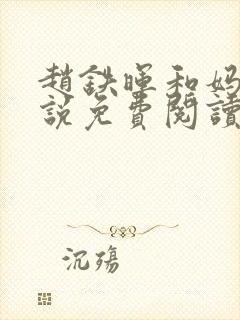 趙鉄暉和妈
説免費閱讀
沉殇